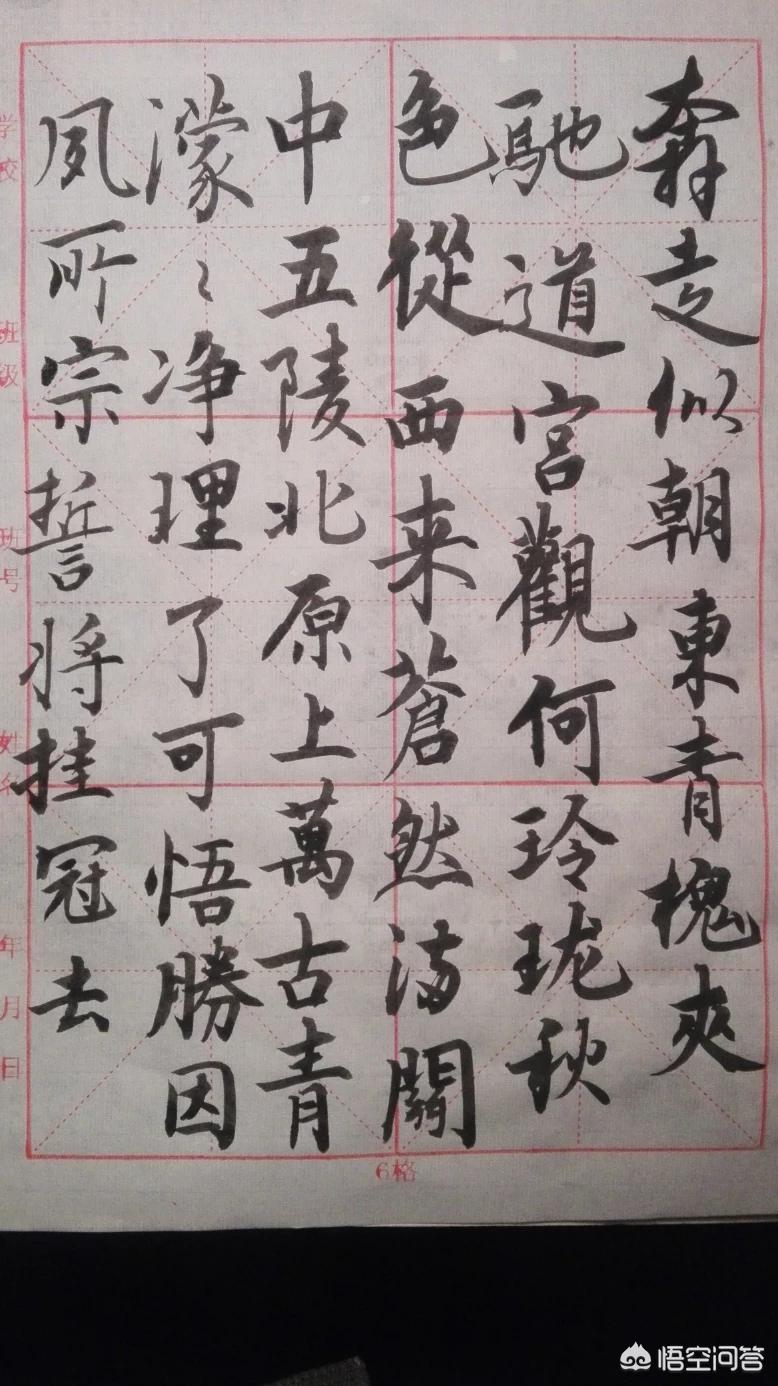 奔走似朝東青槐夾
馳道宮觀何玲珑秋
色從西来蒼然满關
中五陵北原上萬古青
濛〻净理了可悟勝因
夙所宗誓将挂冠去
学校
班级
班号
姓名
年月日
6格
悟空问答